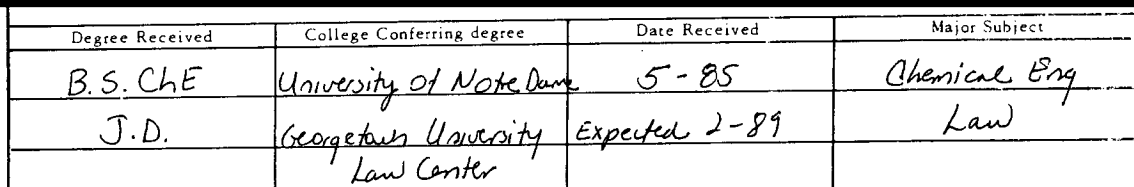 Degree Received College Conferring degree Date Received Major Subject
B.S. ChE University of Notre Dame 5-85 Chemical Eng
J.D. Georgetown University Expected 2-89 Law
Law Center